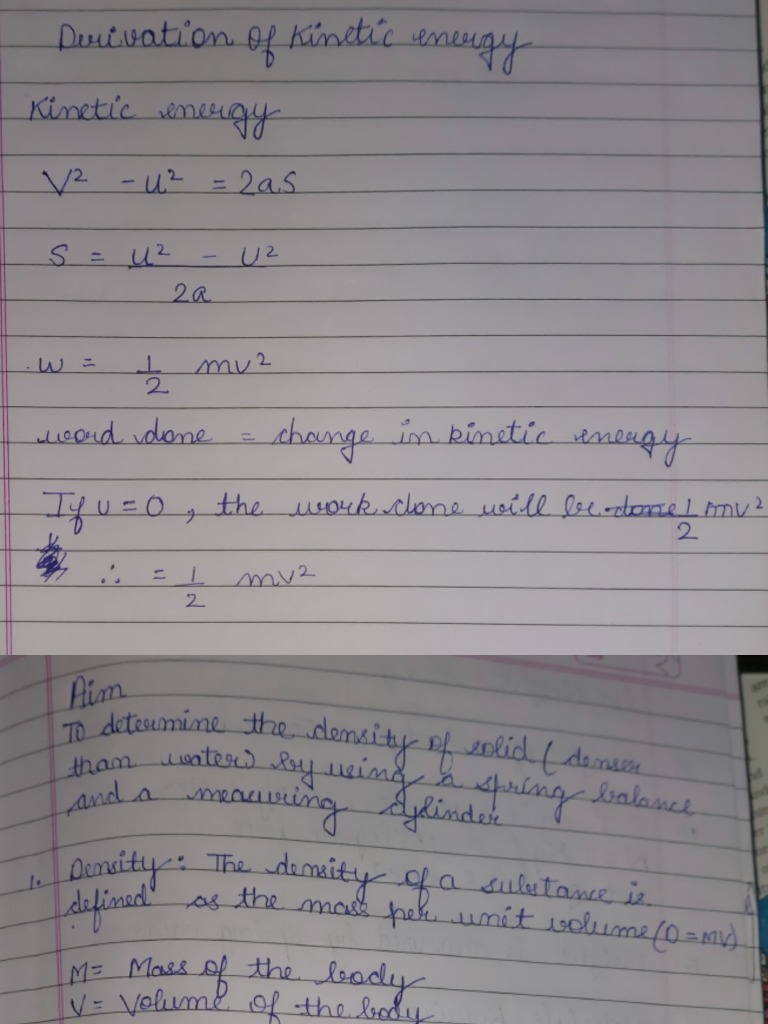 Derivation of Kinetic energy
Kinetic energy
V² - u² = 2as
S = u² - U²
2a
W = 1/2 mv²
word done = change in kinetic energy
If u = 0, the work done will be done 1/2 mv²
∴ = 1/2 mv²
Aim
To determine the density of solid (denser
than water) by using a spring balance
and a measuring cylinder
1. Density: The density of a substance is
defined as the mass per unit volume (D = mv)
M = Mass of the body
V = Volume of the body